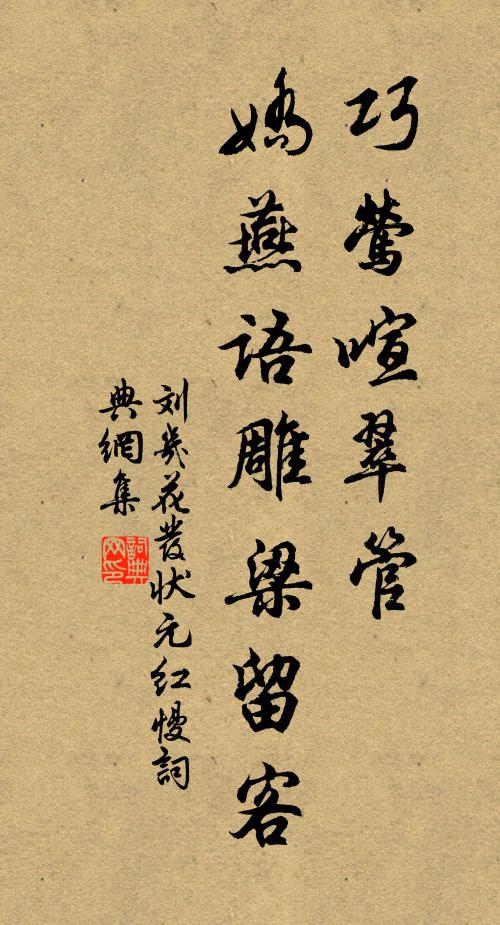 巧莺喧翠管
娇燕语雕梁留客
刘几花发状元红慢词
典網集
詞典網印